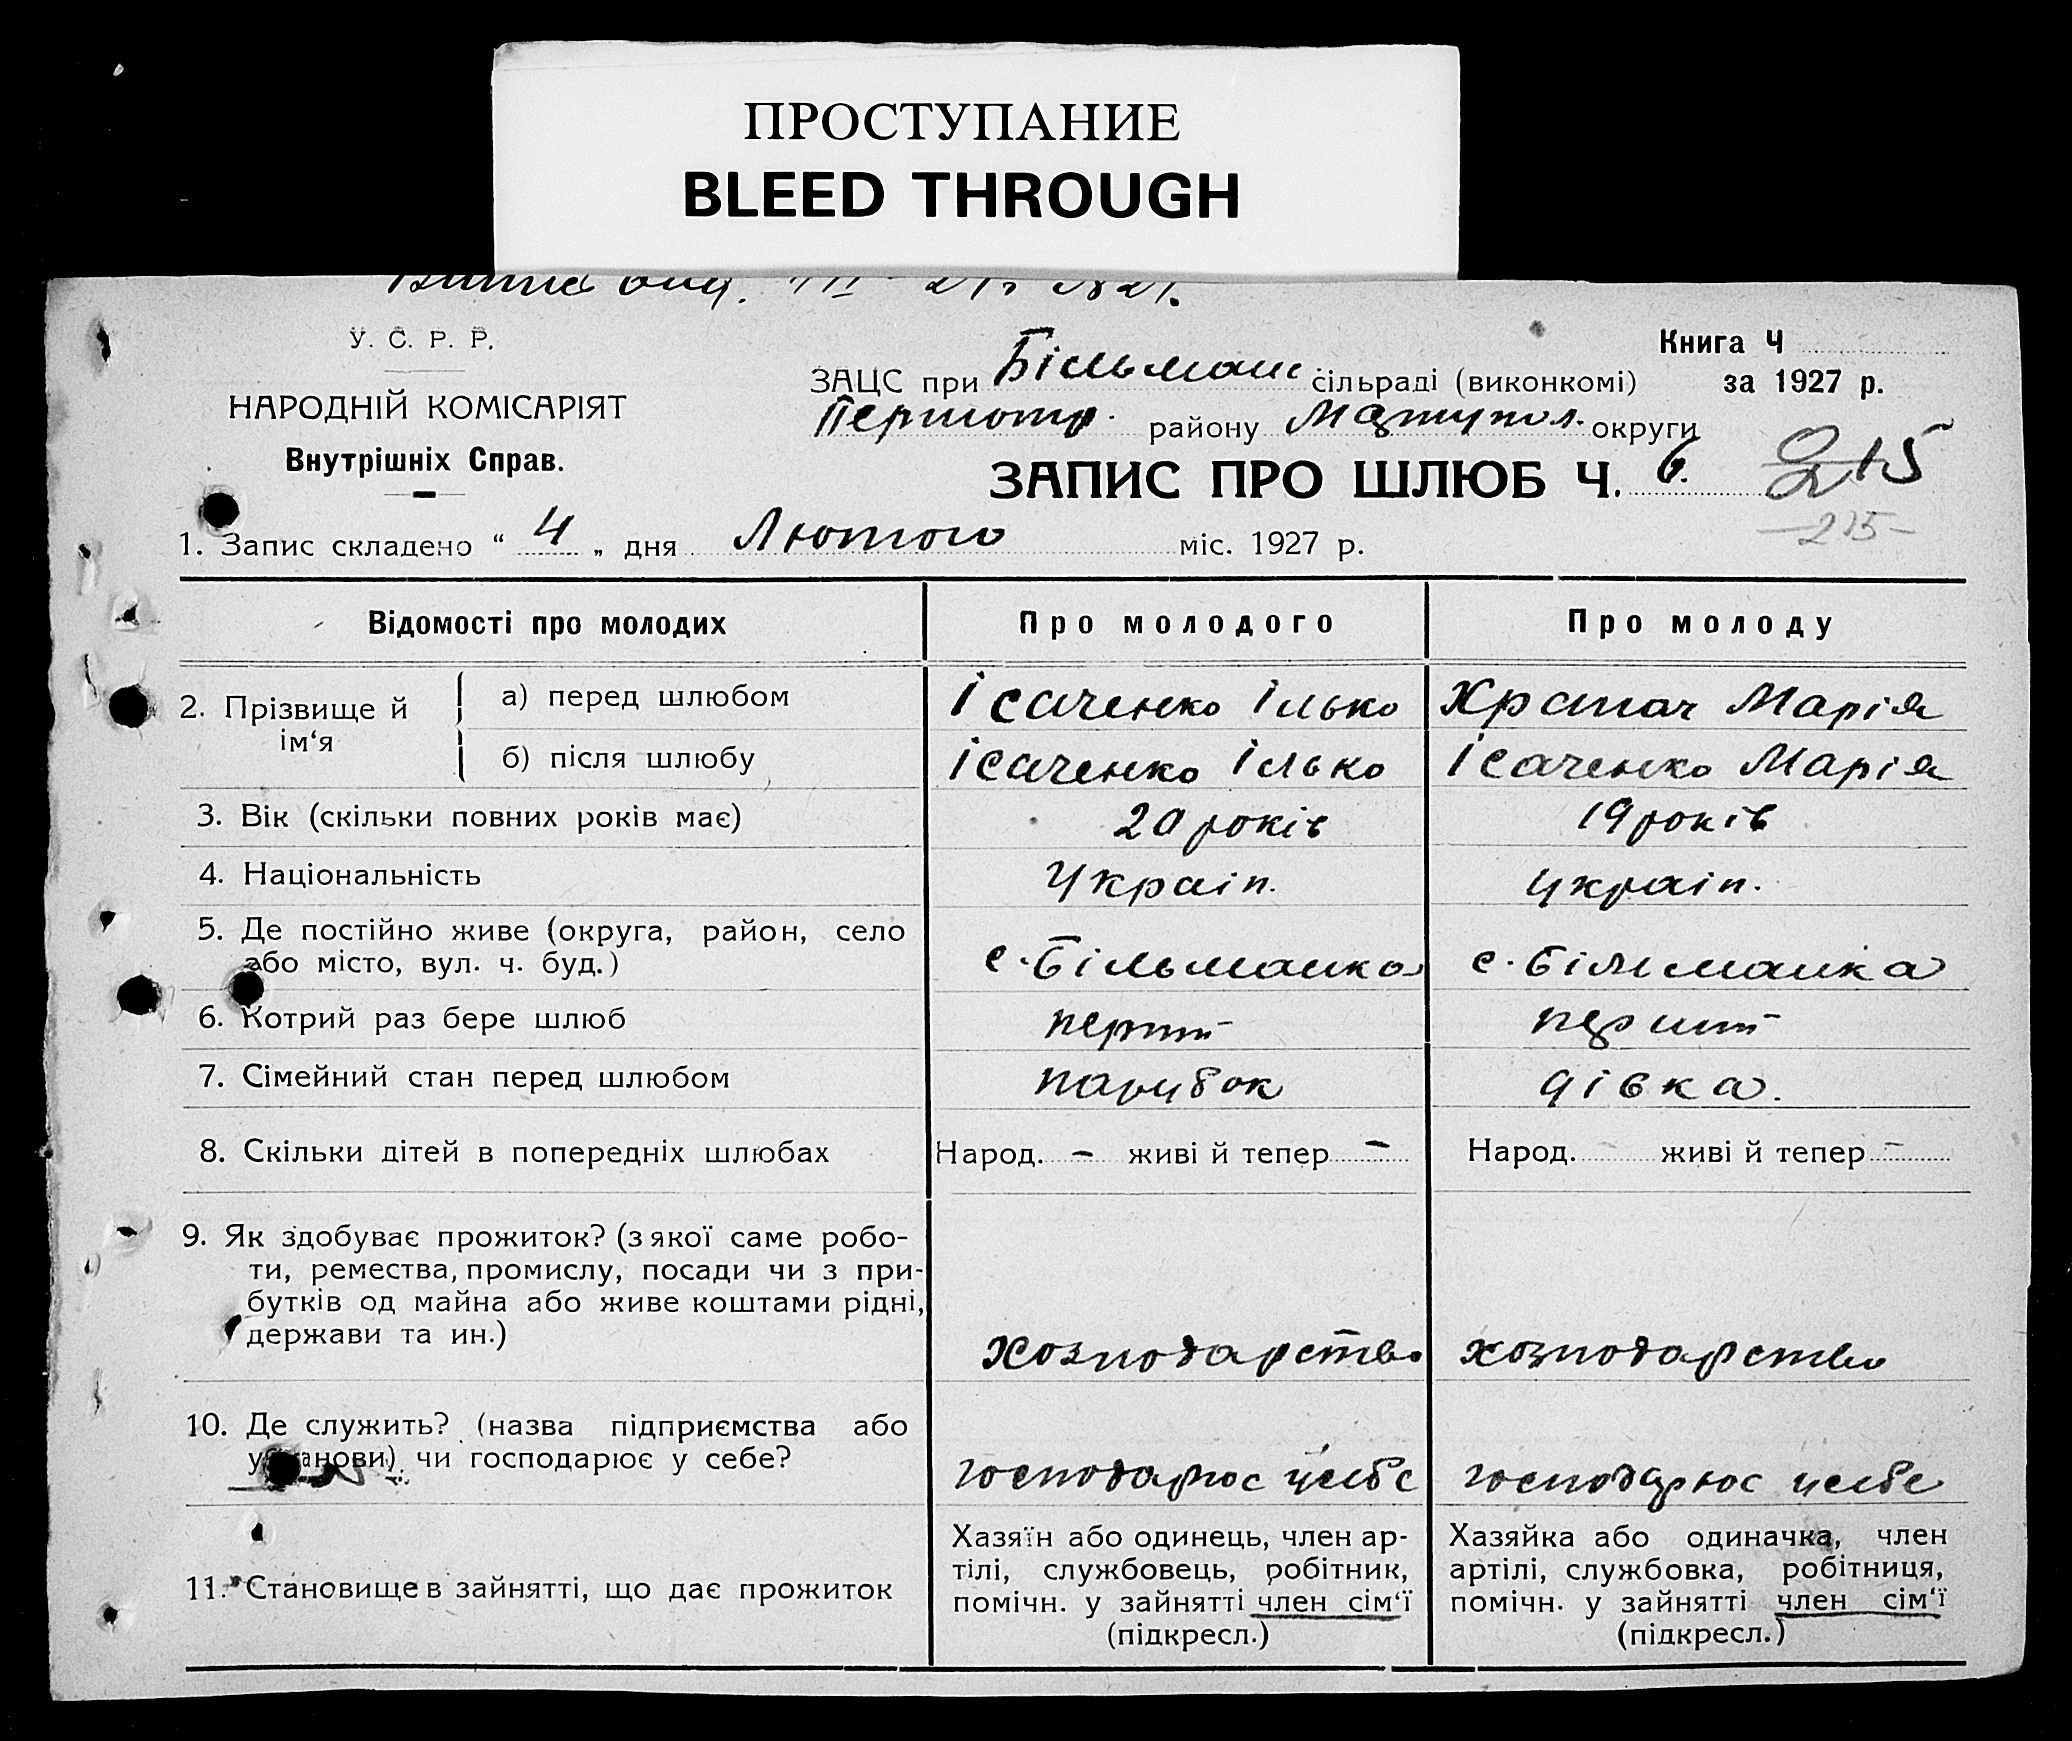 ПРОСТУПАНИЕ
BLEED THROUGH
У. С. Р. Р.
НАРОДНІЙ КОМІСАРІЯТ
Внутрішніх Справ.
Книга Ч
ЗАЦС при Більмаш сільраді (виконкомі) за 1927 р.
Першотр. району Маріупол. округи
ЗАПИС ПРО ШЛЮБ Ч. 6. 215
215
1. Запис складено “ 4 „ дня Лютого міс. 1927 р.
Відомості про молодих Про молодого Про молоду
2. Прізвище й ім‘я
а) перед шлюбом Ісаченко Ілько Храпач Марія
б) після шлюбу Ісаченко Ілько Ісаченко Марія
3. Вік (скільки повних років має) 20 років 19 років
4. Національність Україн. україн.
5. Де постійно живе (округа, район, село
або місто, вул. ч. буд.) с. Більманка с. Більманка
6. Котрий раз бере шлюб перший перший
7. Сімейний стан перед шлюбом парубок дівка.
8. Скільки дітей в попередніх шлюбах Народ. – живі й тепер – Народ. – живі й тепер –
9. Як здобуває прожиток? (з якої саме робо-
ти, ремества, промислу, посади чи з при-
бутків од майна або живе коштами рідні,
держави та ин.) хозподарство хозподарство
10. Де служить? (назва підприємства або
установи) чи господарює у себе? господарює у себе господарює у себе
11. Становище в зайнятті, що дає прожиток
Хазяїн або одинець, член ар-
тілі, службовець, робітник,
помічн. у зайнятті член сім‘ї
(підкресл.)
Хазяйка або одиначка, член
артілі, службовка, робітниця,
помічн. у зайнятті член сім‘ї
(підкресл.)